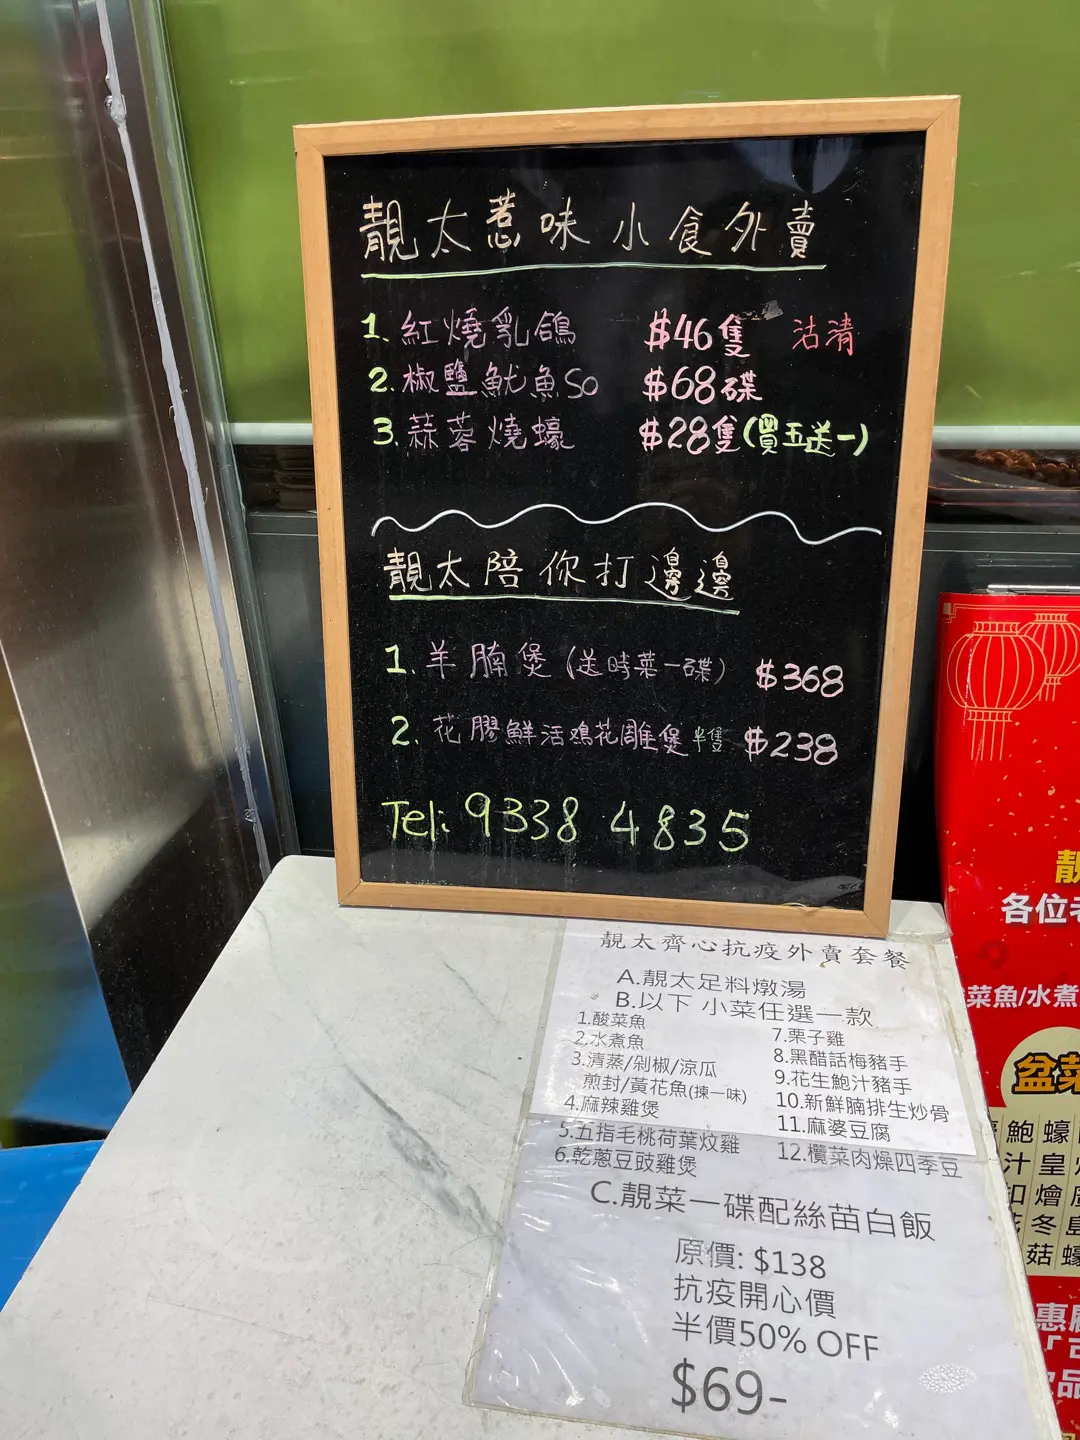 靚太惹味小食外賣
1. 紅燒乳鴿 $46隻 沽清
2. 椒鹽魷魚So $68碟
3. 蒜蓉燒蠔 $28隻(買五送一)
靚太陪你打邊邊
1. 羊腩煲(送時菜一碟) $368
2. 花膠鮮活鷄花雕煲半隻 $238
Tel: 9338 4835
靚太齊心抗疫外賣套餐
A.靚太足料燉湯
B.以下 小菜任選一款
1.酸菜魚
2.水煮魚
3.清蒸/剁椒/涼瓜
煎封/黃花魚(揀一味)
4.麻辣雞煲
5.五指毛桃荷葉炆雞
6.乾蔥豆豉雞煲
7.栗子雞
8.黑醋話梅豬手
9.花生鮑汁豬手
10.新鮮腩排生炒骨
11.麻婆豆腐
12.欖菜肉燥四季豆
C.靚菜一碟配絲苗白飯
原價: $138
抗疫開心價
半價50% OFF
$69-
靚
各位老
酸菜魚/水煮
盆菜
鮑蠔
汁皇
扣燴
冬島
菇蠔
惠顧
飲品